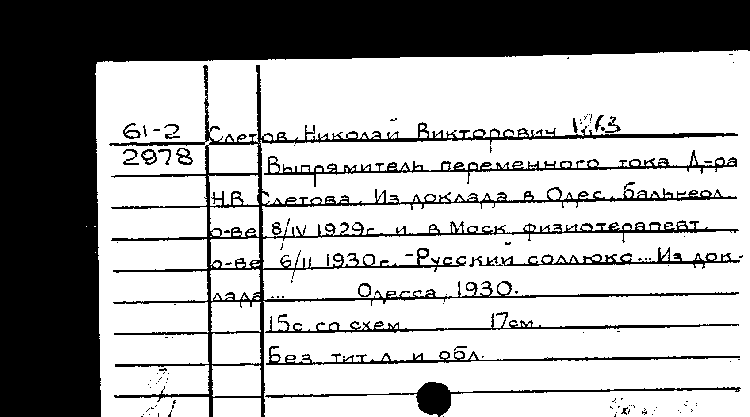 61-2 Слетов, Николай Викторович
2978 Выпрямитель переменного тока Д-ра
Н.В. Слетова. Из доклада в Одес. бальнеол.
о-ве 8/IV 1929г. и в Моск. физиотерапевт.
о-ве 6/II 1930г. - Русский соллюкс... Из док-
лада... Одесса, 1930.
15с. со схем. 17см.
Без тит.л. и обл.